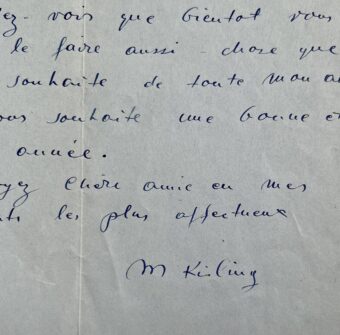 ez-vous que bientôt vous
le faire aussi - chose que
souhaite de toute mon a
ous souhaite une bonne e
année.
yez chère amie en mes
ts les plus affectueux
M Kisling